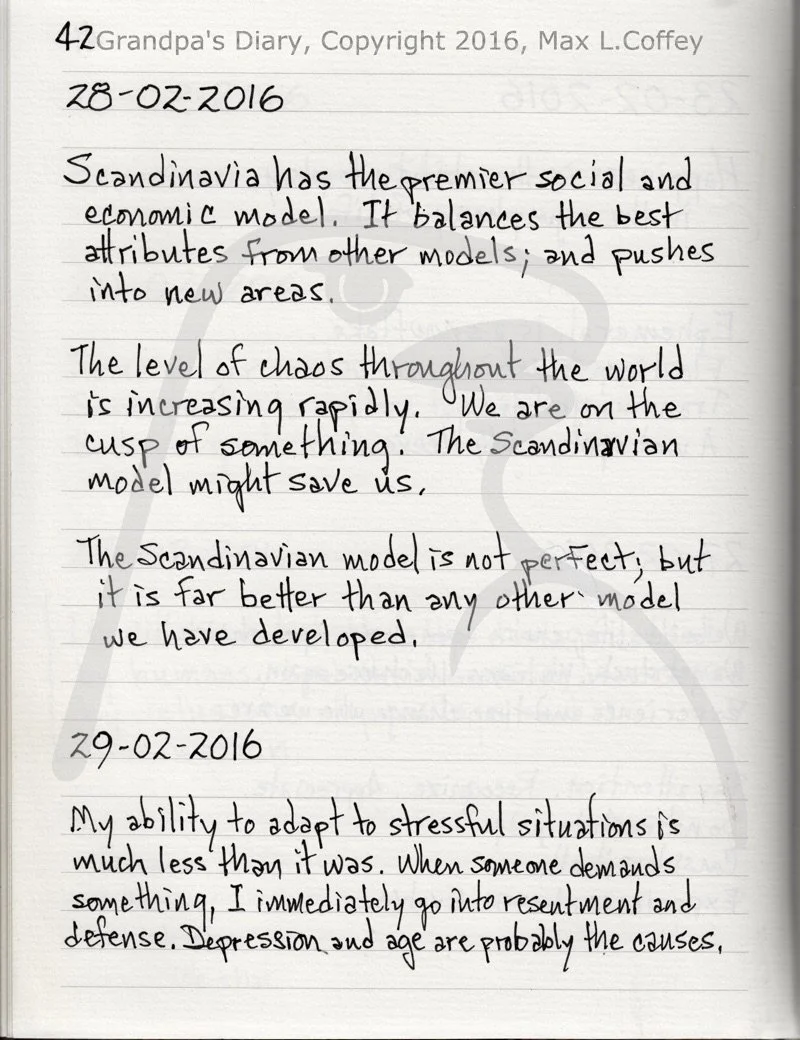 42Grandpa's Diary, Copyright 2016, Max L.Coffey
28-02-2016
Scandinavia has the premier social and
economic model. It balances the best
attributes from other models; and pushes
into new areas.
The level of chaos throughout the world
is increasing rapidly. We are on the
cusp of something. The Scandinavian
model might save us.
The Scandinavian model is not perfect; but
it is far better than any other model
we have developed.
29-02-2016
My ability to adapt to stressful situations is
much less than it was. When someone demands
something, I immediately go into resentment and
defense. Depression and age are probably the causes.